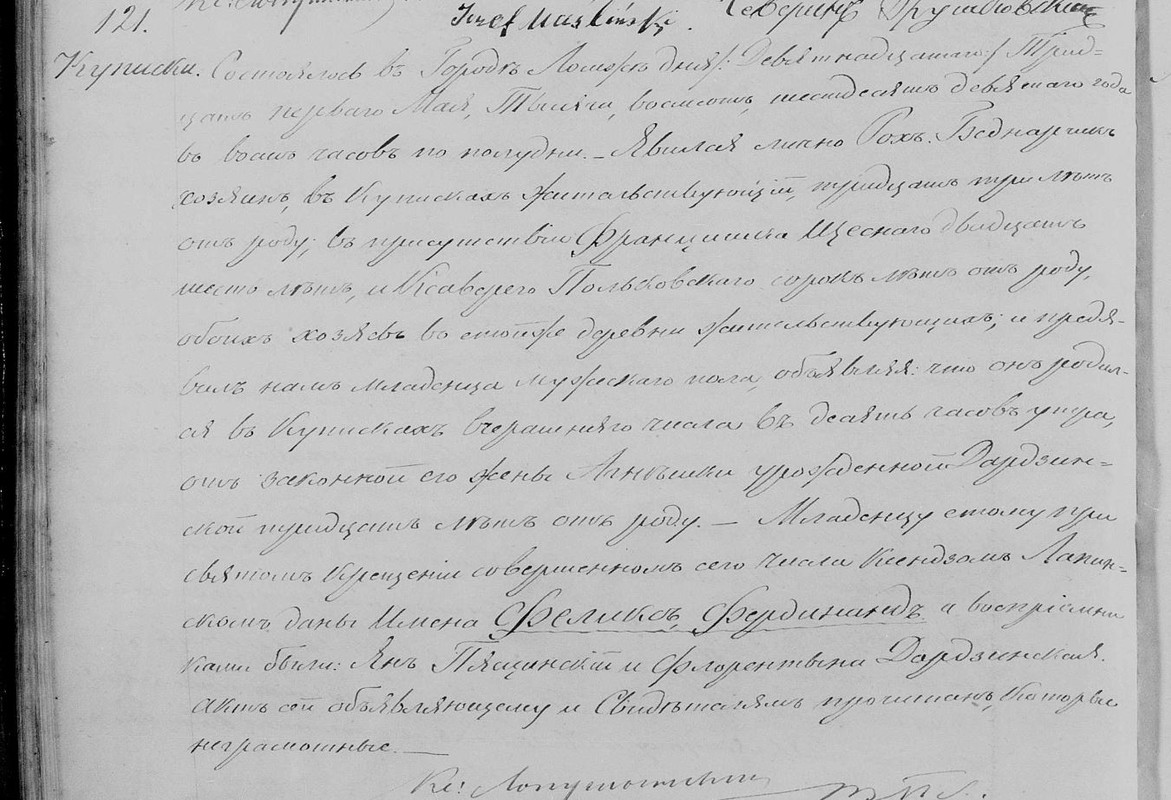 121.
Józef Maśliński.
Северинъ
Куписки. Состоялось въ Городѣ Ломжѣ дня /: Девятнадцатаго :/ Трид-
цать перваго Мая, Тысяча, восемсотъ, шестдесятъ девятаго года
въ восмь часовъ по полудни. — Явился лично Рохъ Беднарчикъ
хозяинъ, въ Купискахъ жительствующій, тридцать три лѣтъ
отъ роду; въ присутствіи Францишка Щеснаго двадцать
шесть лѣтъ, и Ксаверего Польковскаго сорокъ лѣтъ отъ роду,
обоихъ хозяевъ во стойже деревни жительствующихъ; и предя-
вилъ намъ младенца мужескаго пола, объявляя: что онъ родил-
ся въ Купискахъ вчерашняго числа въ десять часовъ утра,
отъ законной его жены Агнѣшки урожденной Дардзин-
ской тридцать лѣтъ отъ роду. — Младенцу етому при
святомъ Крещеніи совершенномъ сего числа Ксендзомъ Лапин-
скомъ даны Имена Феликсъ, Фердинандъ а воспріемни
ками были: Янъ Пясцинскій и Флорентына Дардзинская.
Актъ сей объявляющему и Свидѣтелямъ прочитанъ, Которые
неграмотные. —
Кс: